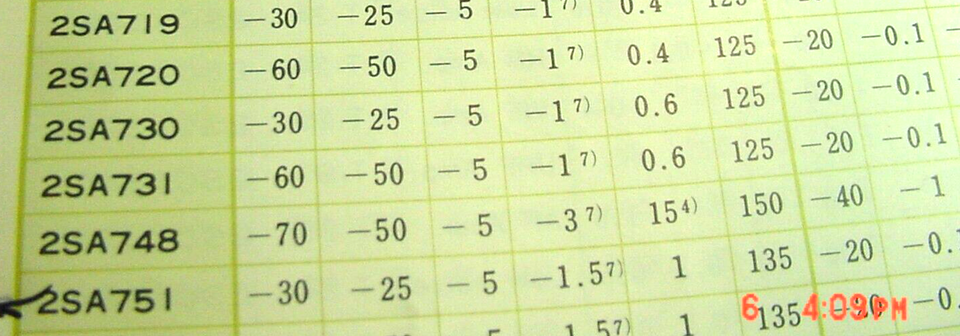 2SA719 -30 -25 -5 -1 7) 0.4 125
2SA720 -60 -50 -5 -1 7) 0.4 125 -20 -0.1
2SA730 -30 -25 -5 -1 7) 0.6 125 -20 -0.1
2SA731 -60 -50 -5 -1 7) 0.6 125 -20 -0.1
2SA748 -70 -50 -5 -3 7) 15 4) 150 -40 -1
2SA751 -30 -25 -5 -1.5 7) 1 135 -20 -0.1
5 1.5 7) 1 135 -20 -0.
6 4:09PM